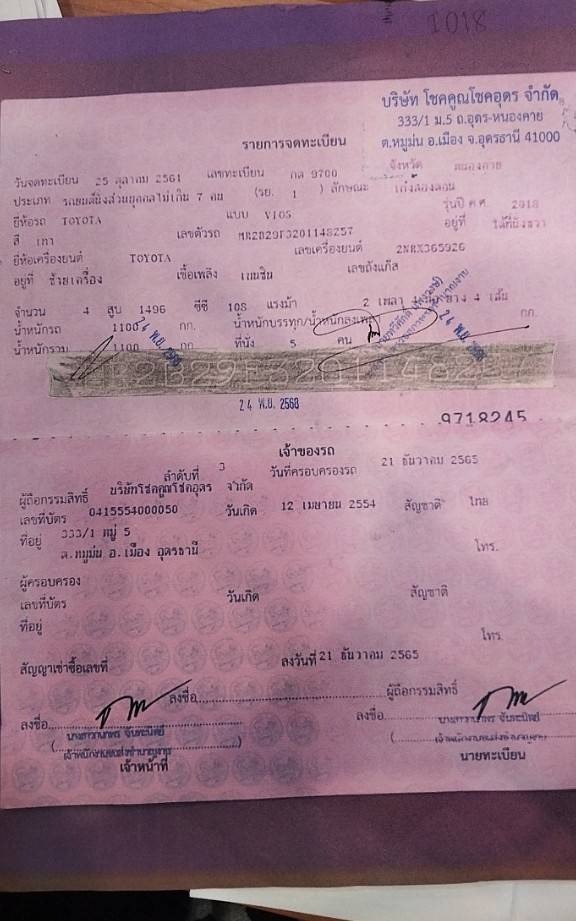 1018
บริษัท โชคคูณโชคอุดร จำกัด
333/1 ม.5 ถ.อุดร-หนองคาย
ต.หมูม่น อ.เมือง จ.อุดรธานี 41000
รายการจดทะเบียน
วันจดทะเบียน 25 ตุลาคม 2561 เลขทะเบียน กล 9700 จังหวัด หนองคาย
ประเภท รถยนต์นั่งส่วนบุคคลไม่เกิน 7 คน (รย. 1 ) ลักษณะ เก๋งสองตอน
ยี่ห้อรถ TOYOTA แบบ VIOS รุ่นปี ค.ศ. 2018
สี เทา เลขตัวรถ MR2B29F3201148257 อยู่ที่ ใต้ที่นั่งขวา
ยี่ห้อเครื่องยนต์ TOYOTA เลขเครื่องยนต์ 2NRX365926
อยู่ที่ ซ้ายเครื่อง เชื้อเพลิง เบนซิน เลขถังแก๊ส
จำนวน 4 สูบ 1496 ซีซี 108 แรงม้า 2 เพลา 4 ล้อ ยาง 4 เส้น
น้ำหนักรถ 1100 กก. น้ำหนักบรรทุก/น้ำหนักลงเพลา กก.
น้ำหนักรวม 1100 กก. ที่นั่ง 5 คน
24 พ.ย. 2568
24 พ.ย. 2568
MR2B29F3201148257
24 พ.ย. 2568
9718245
เจ้าของรถ
ลำดับที่ 3 วันที่ครอบครองรถ 21 ธันวาคม 2565
ผู้ถือกรรมสิทธิ์ บริษัทโชคคูณโชคอุดร จำกัด
เลขที่บัตร 0415554000050 วันเกิด 12 เมษายน 2554 สัญชาติ ไทย
ที่อยู่ 333/1 หมู่ 5
ต.หมูม่น อ.เมือง อุดรธานี โทร.
ผู้ครอบครอง
เลขที่บัตร วันเกิด สัญชาติ
ที่อยู่
โทร.
สัญญาเช่าซื้อเลขที่ ลงวันที่ 21 ธันวาคม 2565
ลงชื่อ ผู้ถือกรรมสิทธิ์
ลงชื่อ ลงชื่อ
เจ้าพนักงานขนส่งชำนาญงาน เจ้าพนักงานขนส่งชำนาญงาน
เจ้าหน้าที่ นายทะเบียน